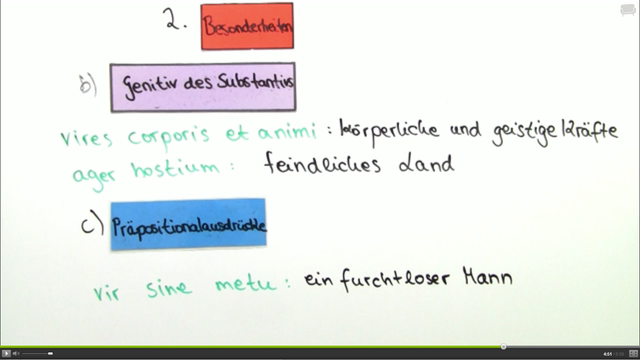 2. Besonderheiten
b) Genitiv des Substantivs
vires corporis et animi : körperliche und geistige Kräfte
ager hostium : feindliches Land
c) Präpositionalausdrücke
vir sine metu : ein furchtloser Mann
4:54